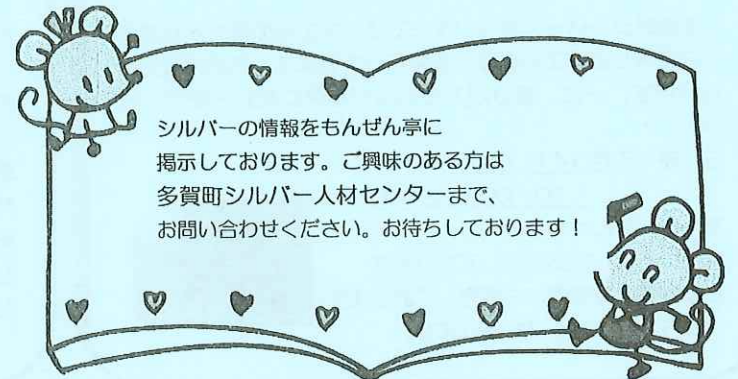 シルバーの情報をもんぜん亭に
掲示しております。ご興味のある方は
多賀町シルバー人材センターまで、
お問い合わせください。お待ちしております！